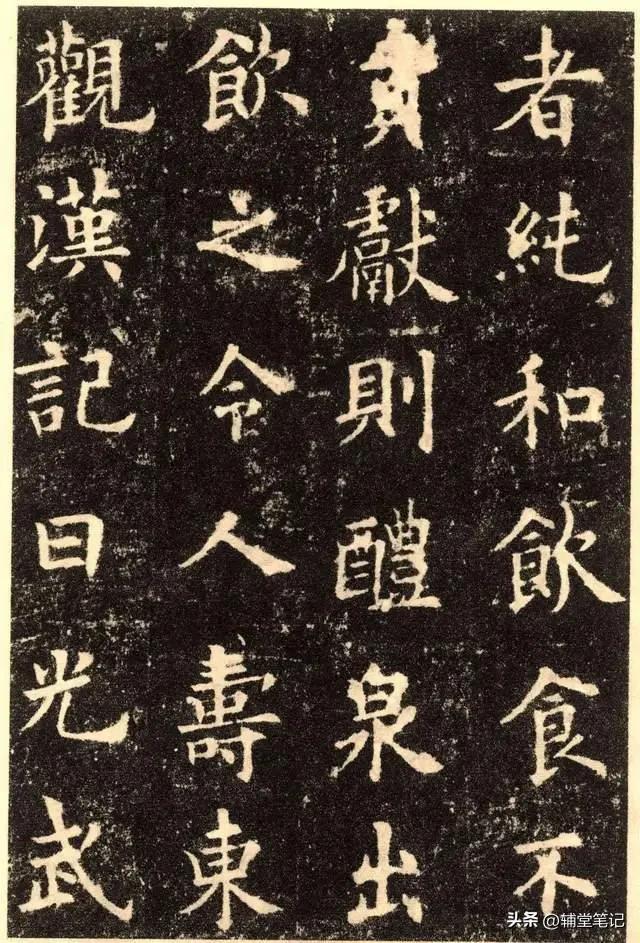 者純和飲食不
貢獻則醴泉出
飲之令人壽東
觀漢記曰光武
头条 @辅堂笔记